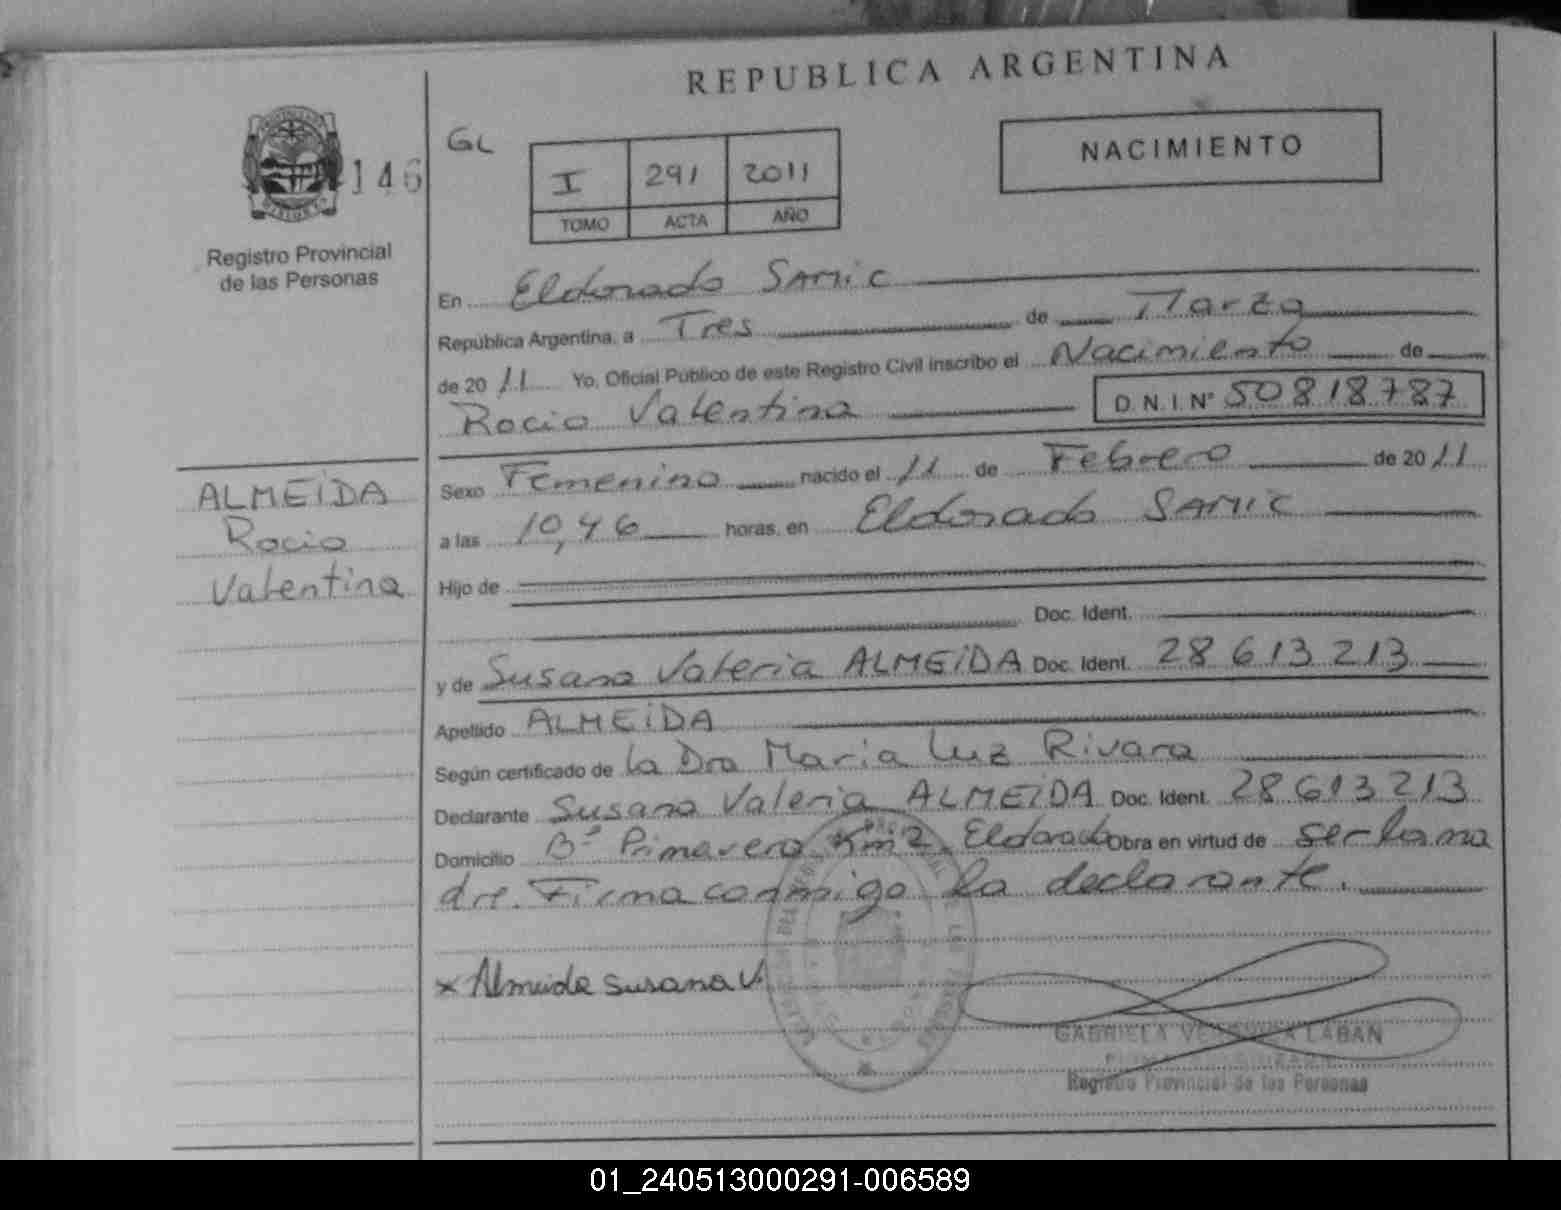 REPUBLICA ARGENTINA
PROVINCIA
MISIONES
146
Registro Provincial
de las Personas
GL
I 291 2011
TOMO ACTA AÑO
NACIMIENTO
En Eldorado SAMIC
República Argentina, a Tres de Marzo
de 2011 Yo, Oficial Público de este Registro Civil inscribo el Nacimiento de
Rocio Valentina D.N.I. Nº 50818787
ALMEIDA
Rocio
Valentina
Sexo Femenino nacido el 11 de Febrero de 2011
a las 10,46 horas, en Eldorado SAMIC
Hijo de
Doc. Ident.
y de Susana Valeria ALMEIDA Doc. Ident. 28 613 213
Apellido ALMEIDA
Según certificado de la Dra Maria Luz Rivara
Declarante Susana Valeria ALMEIDA Doc. Ident. 28 613 213
Domicilio Bº Primavera Km 2 Eldorado Obra en virtud de ser la ma
dre. Firma conmigo la declarante.
x Almeida Susana V.
GABRIELA LABAN
Registro Provincial de las Personas
01_240513000291-006589